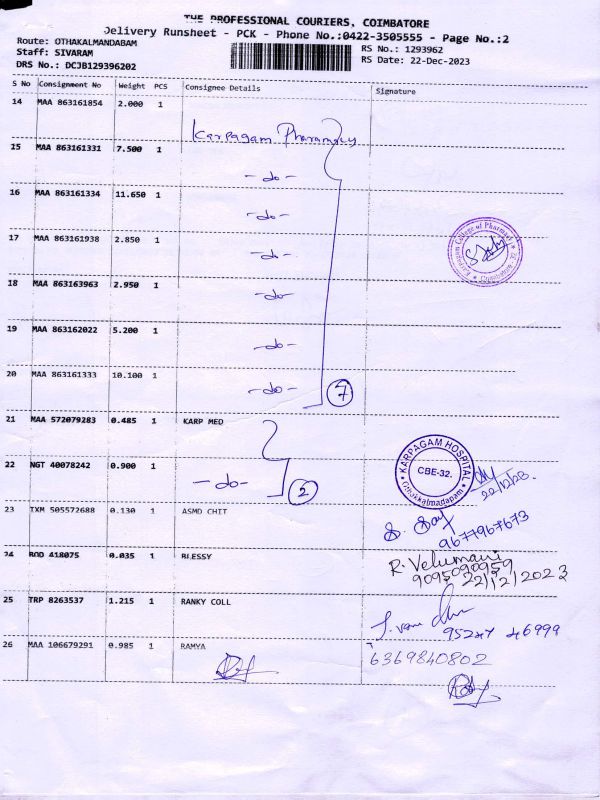 THE PROFESSIONAL COURIERS, COIMBATORE
Delivery Runsheet - PCK - Phone No.:0422-3505555 - Page No.:2
Route: OTHAKALMANDABAM
Staff: SIVARAM
DRS No.: DCJB129396202
RS No.: 1293962
RS Date: 22-Dec-2023
S No Consignment No Weight PCS Consignee Details Signature
14 MAA 863161854 2.000 1
Karpagam Pharamacy
15 MAA 863161331 7.500 1
-do-
16 MAA 863161334 11.650 1
-do-
17 MAA 863161938 2.850 1
-do-
Karpagam College of Pharmacy
Coimbatore - 32.
18 MAA 863163963 2.950 1
-do-
19 MAA 863162022 5.200 1
-do-
20 MAA 863161333 10.100 1
-do- 7
21 MAA 572079283 0.485 1 KARP MED
KARPAGAM HOSPITAL
CBE-32.
Othakkalmadapam
22/12/23.
22 NGT 40078242 0.900 1
-do- 2
23 TXM 505572688 0.130 1 ASMD CHIT
9677967673
24 BOD 418075 0.035 1 BLESSY
R. Velumani
9095090959
22/12/2023
25 TRP 8263537 1.215 1 RANKY COLL
95247 46999
26 MAA 106679291 0.985 1 RAMYA
6369840802